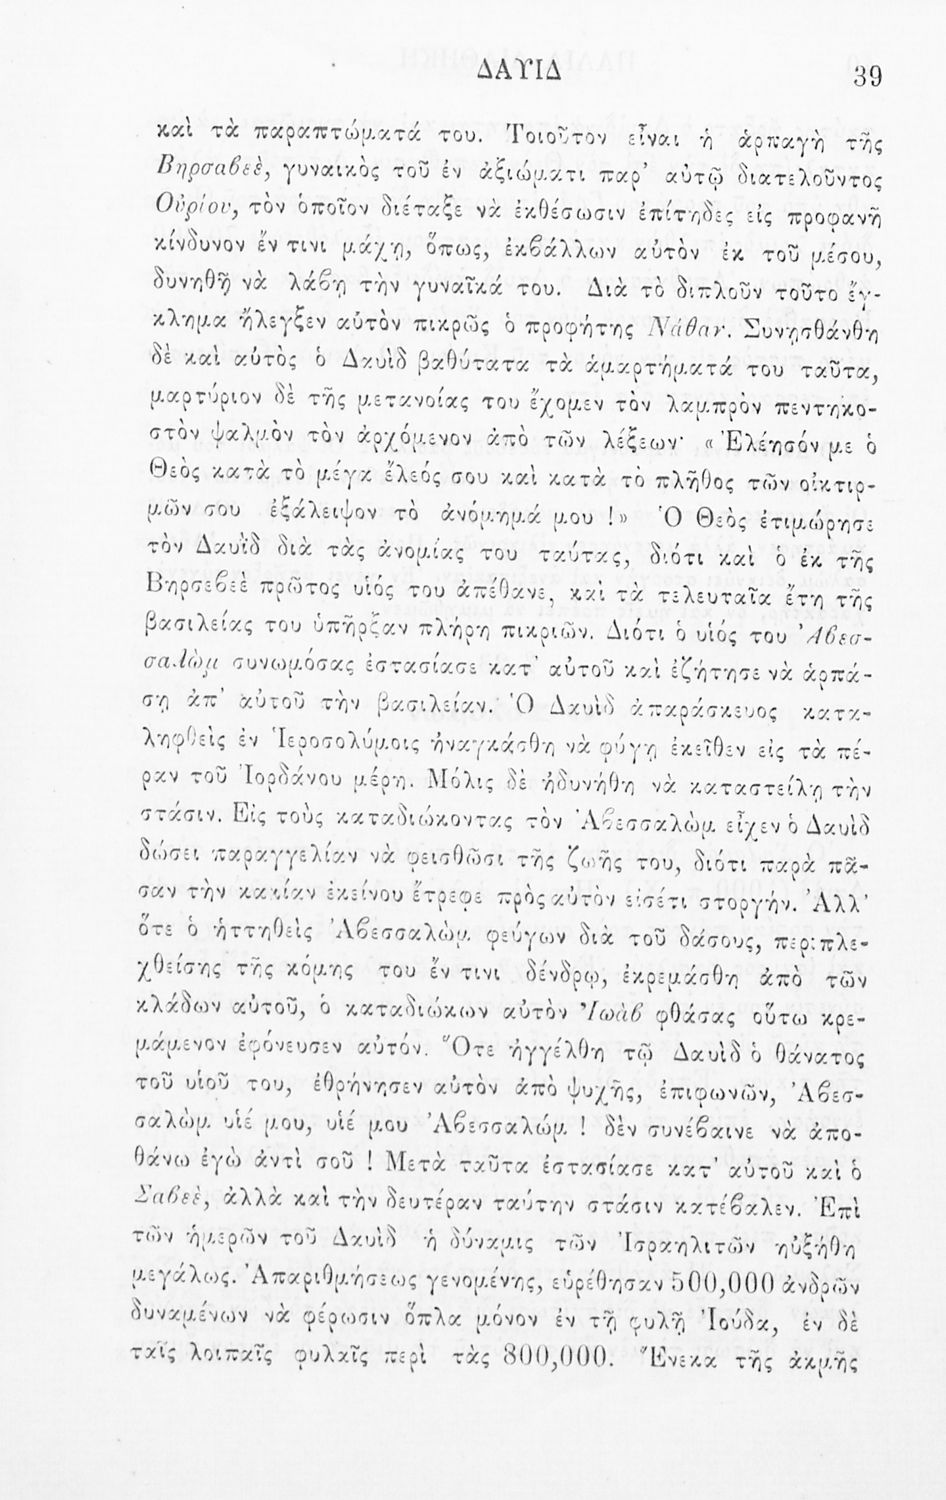 ΔΑΥΙΔ
39
καὶ τὰ παραπτώματά του. Τοιοῦτον εἶναι ἡ ἁρπαγὴ τῆς
Βηρσαβεὲ, γυναικὸς τοῦ ἐν ἀξιώματι παρ' αὐτῷ διατελοῦντος
Οὐρίου, τὸν ὁποῖον διέταξε νὰ ἐκθέσωσιν ἐπίτηδες εἰς προφανῆ
κίνδυνον ἔν τινι μάχῃ, ὅπως, ἐκβάλλων αὐτὸν ἐκ τοῦ μέσου,
δυνηθῇ νὰ λάβῃ τὴν γυναῖκά του. Διὰ τὸ διπλοῦν τοῦτο ἔγ-
κλημα ἤλεγξεν αὐτὸν πικρῶς ὁ προφήτης Νάθαν. Συνῃσθάνθη
δὲ καὶ αὐτὸς ὁ Δαυὶδ βαθύτατα τὰ ἁμαρτήματά του ταῦτα,
μαρτύριον δὲ τῆς μετανοίας του ἔχομεν τὸν λαμπρὸν πεντηκο-
στὸν ψαλμὸν τὸν ἀρχόμενον ἀπὸ τῶν λέξεων· «Ἐλέησόν με ὁ
Θεὸς κατὰ τὸ μέγα ἔλεός σου καὶ κατὰ τὸ πλῆθος τῶν οἰκτιρ-
μῶν σου ἐξάλειψον τὸ ἀνόμημά μου !» Ὁ Θεὸς ἐτιμώρησε
τὸν Δαυῒδ διὰ τὰς ἀνομίας του ταύτας, διότι καὶ ὁ ἐκ τῆς
Βηρσεβεὲ πρῶτος υἱός του ἀπέθανε, καὶ τὰ τελευταῖα ἔτη τῆς
βασιλείας του ὑπῆρξαν πλήρη πικριῶν. Διότι ὁ υἱός του Ἀβεσ-
σαλὼμ συνωμόσας ἐστασίασε κατ' αὐτοῦ καὶ ἐζήτησε νὰ ἁρπά-
σῃ ἀπ' αὐτοῦ τὴν βασιλείαν. Ὁ Δαυὶδ ἀπαράσκευος κατα-
ληφθεὶς ἐν Ἱεροσολύμοις ἠναγκάσθη νὰ φύγῃ ἐκεῖθεν εἰς τὰ πέ-
ραν τοῦ Ἰορδάνου μέρη. Μόλις δὲ ἠδυνήθη νὰ καταστείλῃ τὴν
στάσιν. Εἰς τοὺς καταδιώκοντας τὸν Ἀβεσσαλὼμ εἶχεν ὁ Δαυὶδ
δώσει παραγγελίαν νὰ φεισθῶσι τῆς ζωῆς του, διότι παρὰ πᾶ-
σαν τὴν κακίαν ἐκείνου ἔτρεφε πρὸς αὐτὸν εἰσέτι στοργήν. Ἀλλ'
ὅτε ὁ ἡττηθεὶς Ἀβεσσαλὼμ φεύγων διὰ τοῦ δάσους, περιπλε-
χθείσης τῆς κόμης του ἔν τινι δένδρῳ, ἐκρεμάσθη ἀπὸ τῶν
κλάδων αὐτοῦ, ὁ καταδιώκων αὐτὸν Ἰωὰβ φθάσας οὕτω κρε-
μάμενον ἐφόνευσεν αὐτόν. Ὅτε ἠγγέλθη τῷ Δαυὶδ ὁ θάνατος
τοῦ υἱοῦ του, ἐθρήνησεν αὐτὸν ἀπὸ ψυχῆς, ἐπιφωνῶν, Ἀβεσ-
σαλὼμ υἱέ μου, υἱέ μου Ἀβεσσαλώμ ! δὲν συνέβαινε νὰ ἀπο-
θάνω ἐγὼ ἀντὶ σοῦ ! Μετὰ ταῦτα ἐστασίασε κατ' αὐτοῦ καὶ ὁ
Σαβεὲ, ἀλλὰ καὶ τὴν δευτέραν ταύτην στάσιν κατέβαλεν. Ἐπὶ
τῶν ἡμερῶν τοῦ Δαυὶδ ἡ δύναμις τῶν Ἰσραηλιτῶν ηὐξήθη
μεγάλως. Ἀπαριθμήσεως γενομένης, εὑρέθησαν 500,000 ἀνδρῶν
δυναμένων νὰ φέρωσιν ὅπλα μόνον ἐν τῇ φυλῇ Ἰούδα, ἐν δὲ
ταῖς λοιπαῖς φυλαῖς περὶ τὰς 800,000. Ἕνεκα τῆς ἀκμῆς